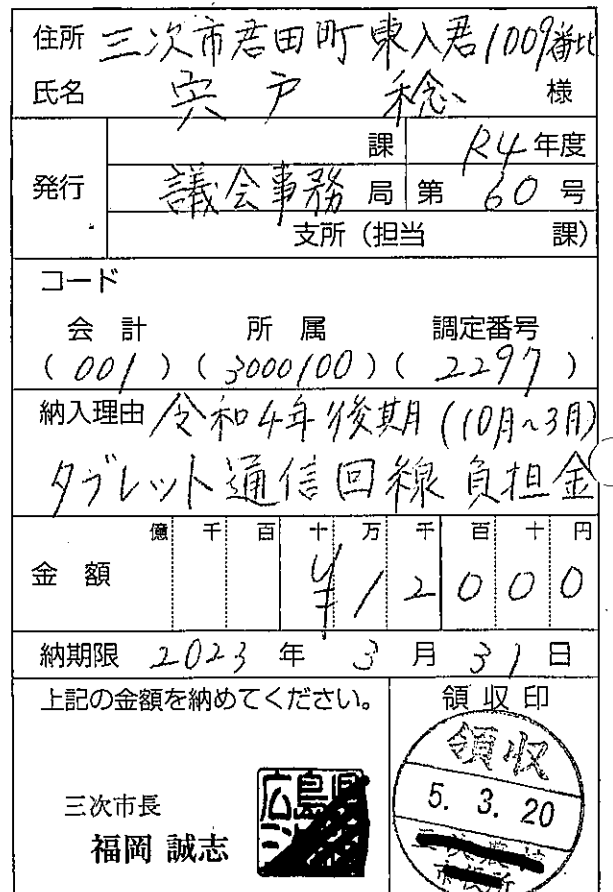 住所 三次市君田町東入君1009番地
氏名 宍戸 稔 様
発行
課 R4年度
議会事務局 第60号
支所(担当 課)
コード
会計 所属 調定番号
(001)(3000100)(2297)
納入理由 令和4年後期(10月~3月)
タブレット通信回線負担金
億 千 百 十 万 千 百 十 円
金額 ¥12000
納期限 2023年3月31日
上記の金額を納めてください。
領収印
領収
5. 3. 20
三次市長
福岡 誠志
広島県